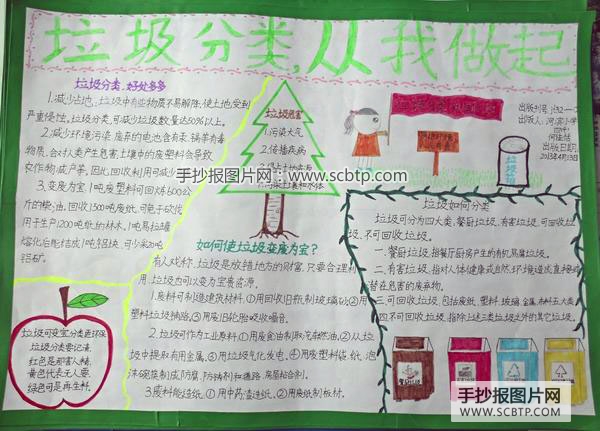 垃圾分类,从我做起
垃圾分类,好处多多
1.减少占地。垃圾中有些物质不易解降,使土地受到
严重侵蚀。垃圾分类,可减少垃圾数量达50%以上。
2.减少环境污染.废弃的电池含有汞、镉等有毒
物质,会对人类产生危害,土壤中的废塑料会导致
农作物减产等,因此回收利用可减少
3.变废为宝.1吨废塑料可回炼600公
斤的柴油,回收1500吨废纸,可免于砍伐
用于生产1200吨纸的林木,1吨易拉罐
熔化后能结成1吨铝块,可少采20吨
铝矿。
垃圾危害
1.污染大气
2.传播疾病
手抄报图片网:www.scbtp.com
如何使垃圾变废为宝?
有人戏称,垃圾是放错地方的财富,只要合理利
用,垃圾也可以变为宝贵资源。
1.废料可制造建筑材料.①用回收旧瓶制玻璃砂;②用
塑料垃圾铺路;③用废旧轮胎吸收噪音。
2.垃圾可作为工业原料.①用废食油制取汽油燃油;②从垃
圾中提取有用金属;③用垃圾气化发电;④用废塑料袋、纸、泡
沫碗提制成防腐、防锈剂和道路、房屋粘合剂。
3.废料能造纸.①用中药渣造纸。②用废纸制板材。
出版日期:
2013年4月13日
垃圾如何分类
垃圾可分为四大类,餐厨垃圾,有害垃圾,可回收垃
圾,不可回收垃圾。
一.餐厨垃圾,指餐厅厨房产生的有机易腐垃圾。
二.有害垃圾,指对人体健康或自然环境造成直接或
潜在危害的废弃物。
三.可回收垃圾,包括废纸、塑料、玻璃、金属、布料五大类
四.不可回收垃圾,指除上述三类垃圾之外的其它垃圾。
垃圾可变宝,分类更环保
垃圾分类要记清,
红色是那害人精,
黄色代表无人要,
绿色可是再生料。
手抄报图片网
WWW.SCBTP.COM